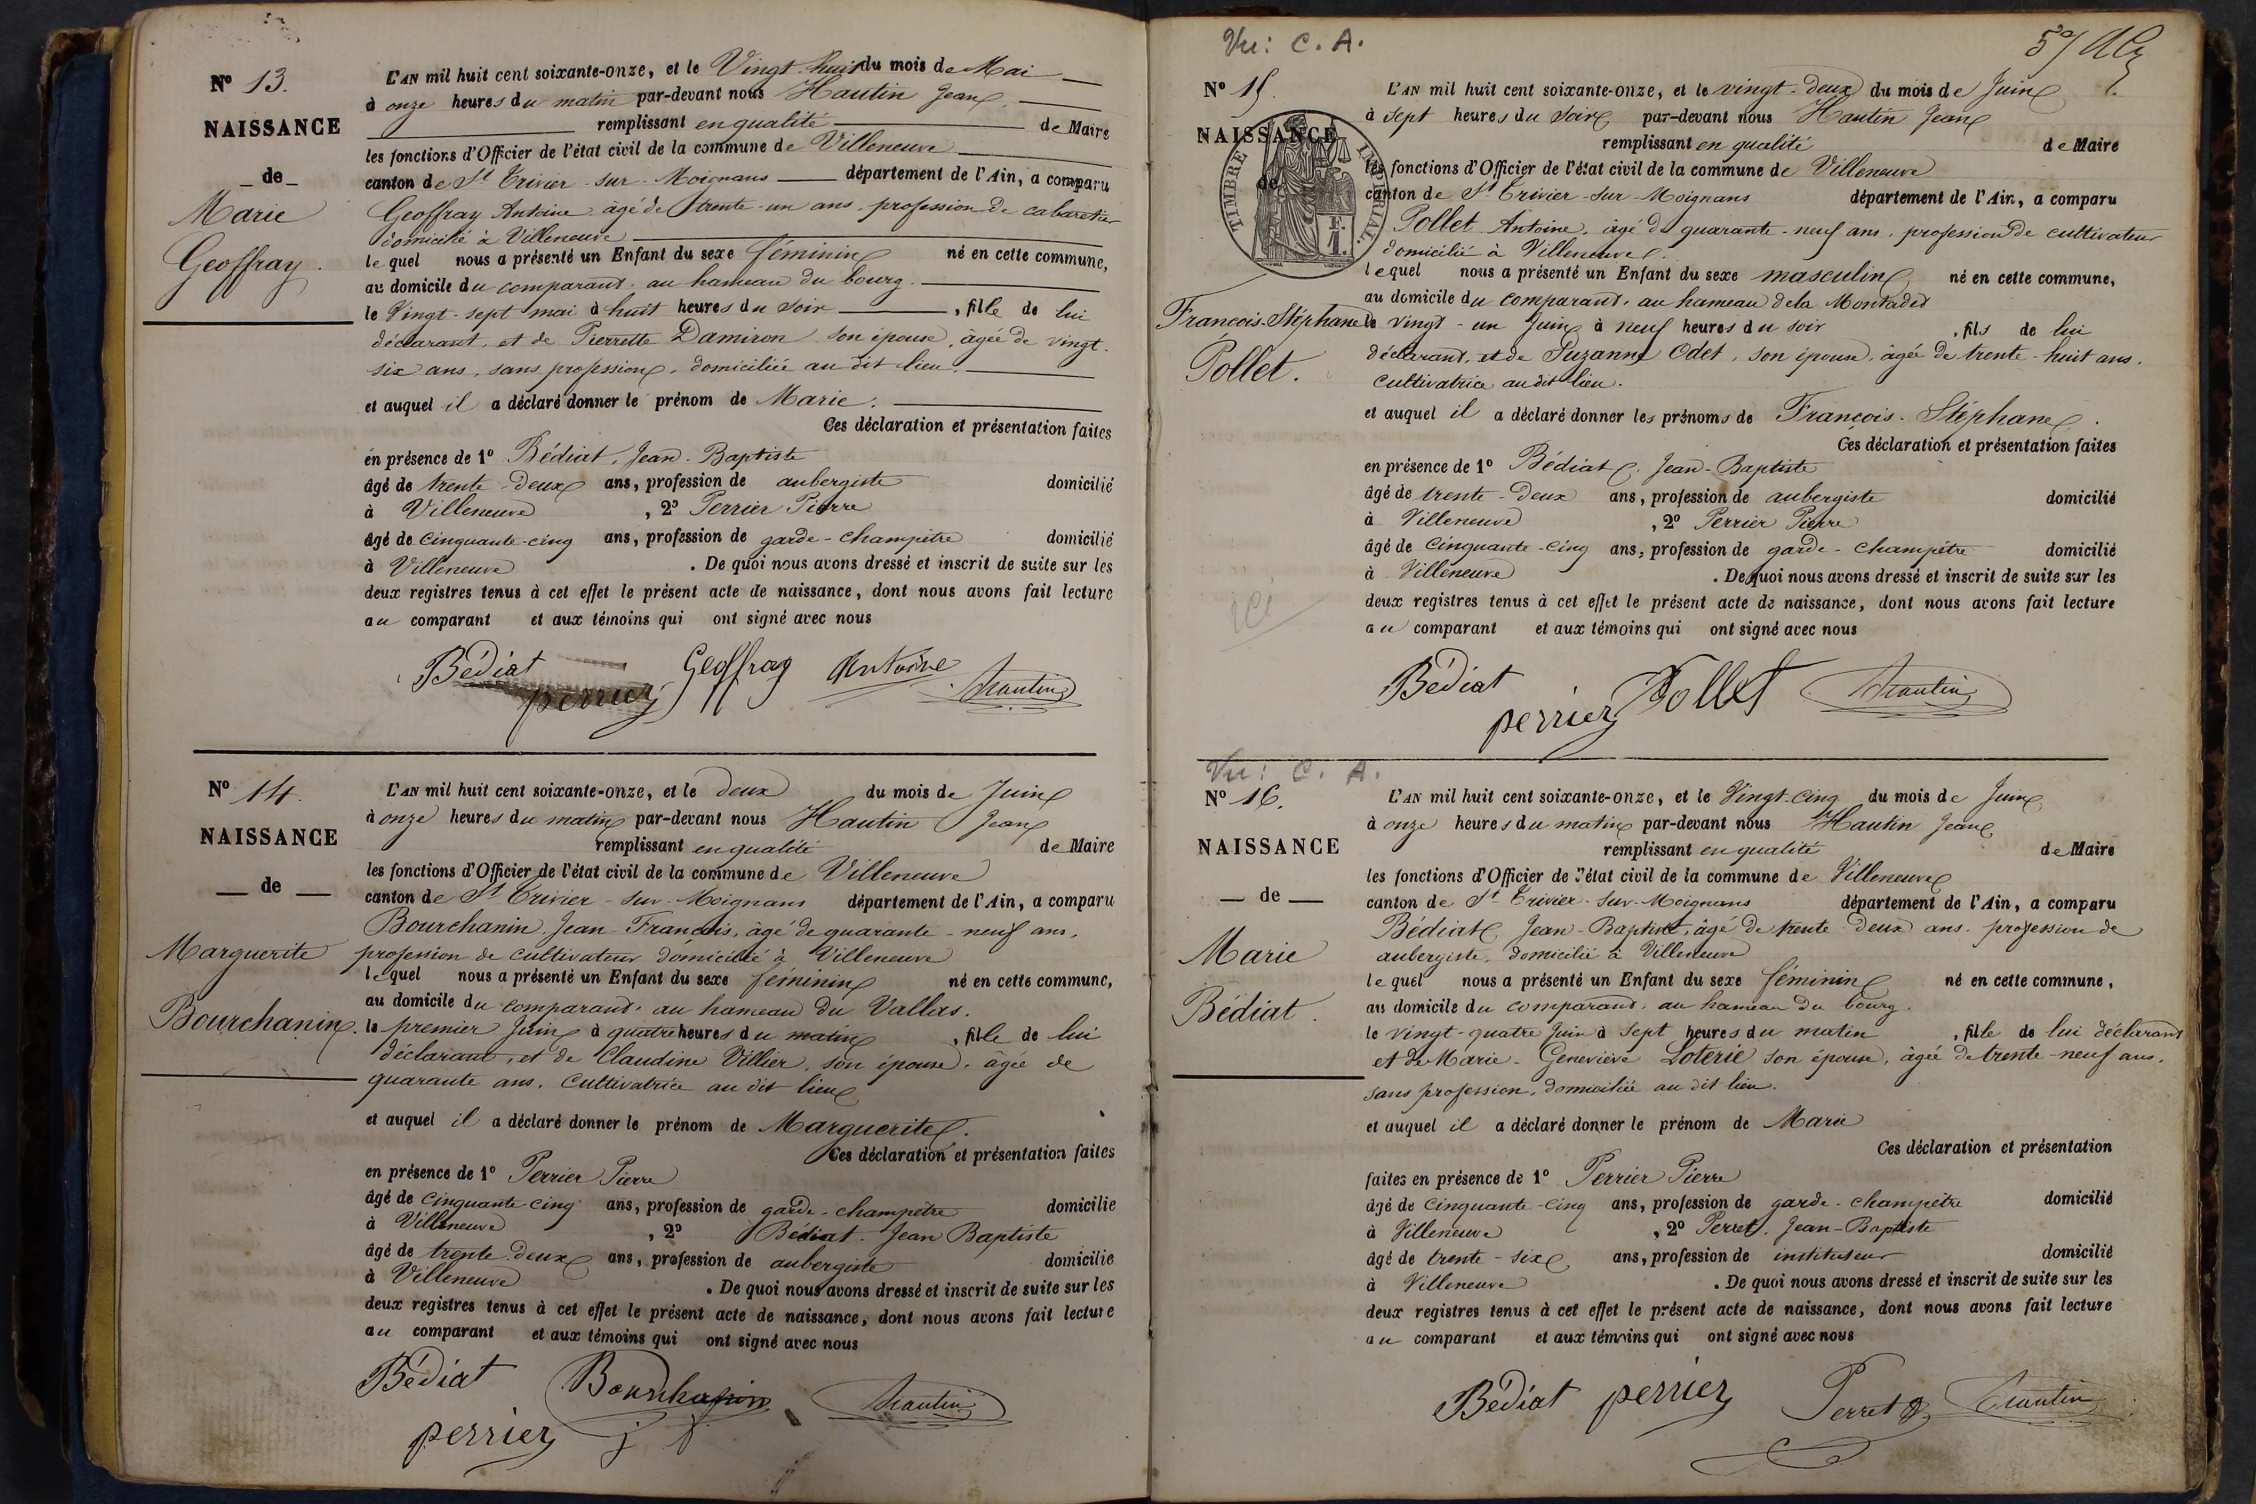 Nº 13.
NAISSANCE
de
Marie
Geoffray.
L'AN mil huit cent soixante-onze, et le Vingt-huit du mois de Mai
à onze heures du matin par-devant nous Hautin Jean
remplissant en qualité de Maire
les fonctions d'Officier de l'état civil de la commune de Villeneuve
canton de St Trivier-sur-Moignans département de l'Ain, a comparu
Geoffray Antoine âgé de trente-un ans, profession de cabaretier
domicilié à Villeneuve
lequel nous a présenté un Enfant du sexe féminin né en cette commune,
au domicile du comparant, au hameau du bourg.
le Vingt-sept mai à huit heures du soir, fille de lui
déclarant, et de Pierrette Damiron son épouse, âgée de vingt-
six ans, sans profession, domiciliée au dit lieu.
et auquel il a déclaré donner le prénom de Marie.
Ces déclaration et présentation faites
en présence de 1º Bédiat, Jean-Baptiste
âgé de trente-deux ans, profession de aubergiste domicilié
à Villeneuve, 2º Perrier Pierre
âgé de cinquante-cinq ans, profession de garde-champêtre domicilié
à Villeneuve. De quoi nous avons dressé et inscrit de suite sur les
deux registres tenus à cet effet le présent acte de naissance, dont nous avons fait lecture
au comparant et aux témoins qui ont signé avec nous
Bédiat perrier Geoffray Antoine Hautin
Nº 14.
NAISSANCE
de
Marguerite
Bourchanin.
L'AN mil huit cent soixante-onze, et le deux du mois de Juin
à onze heures du matin par-devant nous Hautin Jean
remplissant en qualité de Maire
les fonctions d'Officier de l'état civil de la commune de Villeneuve
canton de St Trivier-sur-Moignans département de l'Ain, a comparu
Bourchanin Jean-François, âgé de quarante-neuf ans,
profession de cultivateur domicilié à Villeneuve
lequel nous a présenté un Enfant du sexe féminin né en cette commune,
au domicile du comparant, au hameau du Vallas.
le premier Juin à quatre heures du matin, fille de lui
déclarant, et de Claudine Villier, son épouse, âgée de
quarante ans, cultivatrice au dit lieu
et auquel il a déclaré donner le prénom de Marguerite.
Ces déclaration et présentation faites
en présence de 1º Perrier Pierre
âgé de cinquante-cinq ans, profession de garde-champêtre domicilié
à Villeneuve, 2º Bédiat Jean Baptiste
âgé de trente-deux ans, profession de aubergiste domicilié
à Villeneuve. De quoi nous avons dressé et inscrit de suite sur les
deux registres tenus à cet effet le présent acte de naissance, dont nous avons fait lecture
au comparant et aux témoins qui ont signé avec nous
Bédiat Bourchanin Hautin
perrier j f
Vu: C. A.
Nº 15
NAISSANCE
de
TIMBRE IMPERIAL
F. 1.
François-Stéphane
Pollet.
L'AN mil huit cent soixante-onze, et le vingt-deux du mois de Juin
à sept heures du soir par-devant nous Hautin Jean
remplissant en qualité de Maire
les fonctions d'Officier de l'état civil de la commune de Villeneuve
canton de St Trivier-sur-Moignans département de l'Ain, a comparu
Pollet Antoine, âgé de quarante-neuf ans, profession de cultivateur
domicilié à Villeneuve.
lequel nous a présenté un Enfant du sexe masculin né en cette commune,
au domicile du comparant, au hameau de la Montadet
le vingt-un Juin à neuf heures du soir, fils de lui
déclarant, et de Suzanne Odet, son épouse, âgée de trente-huit ans,
cultivatrice au dit lieu.
et auquel il a déclaré donner les prénoms de François-Stéphane.
Ces déclaration et présentation faites
en présence de 1º Bédiat, Jean-Baptiste
âgé de trente-deux ans, profession de aubergiste domicilié
à Villeneuve, 2º Perrier Pierre
âgé de cinquante-cinq ans, profession de garde-champêtre domicilié
à Villeneuve. De quoi nous avons dressé et inscrit de suite sur les
deux registres tenus à cet effet le présent acte de naissance, dont nous avons fait lecture
au comparant et aux témoins qui ont signé avec nous
Bédiat perrier Pollet Hautin
Vu: C. A.
Nº 16.
NAISSANCE
de
Marie
Bédiat.
L'AN mil huit cent soixante-onze, et le Vingt-cinq du mois de Juin
à onze heures du matin par-devant nous Hautin Jean
remplissant en qualité de Maire
les fonctions d'Officier de l'état civil de la commune de Villeneuve
canton de St Trivier-sur-Moignans département de l'Ain, a comparu
Bédiat Jean-Baptiste, âgé de trente deux ans, profession de
aubergiste, domicilié à Villeneuve
lequel nous a présenté un Enfant du sexe féminin né en cette commune,
au domicile du comparant, au hameau du bourg.
le vingt-quatre Juin à sept heures du matin, fille de lui déclarant
et de Marie-Geneviève Loterie son épouse, âgée de trente-neuf ans,
sans profession, domiciliée au dit lieu.
et auquel il a déclaré donner le prénom de Marie
Ces déclaration et présentation
faites en présence de 1º Perrier Pierre
âgé de cinquante-cinq ans, profession de garde-champêtre domicilié
à Villeneuve, 2º Perret, Jean-Baptiste
âgé de trente-six ans, profession de instituteur domicilié
à Villeneuve. De quoi nous avons dressé et inscrit de suite sur les
deux registres tenus à cet effet le présent acte de naissance, dont nous avons fait lecture
au comparant et aux témoins qui ont signé avec nous
Bédiat perrier Perret Hautin